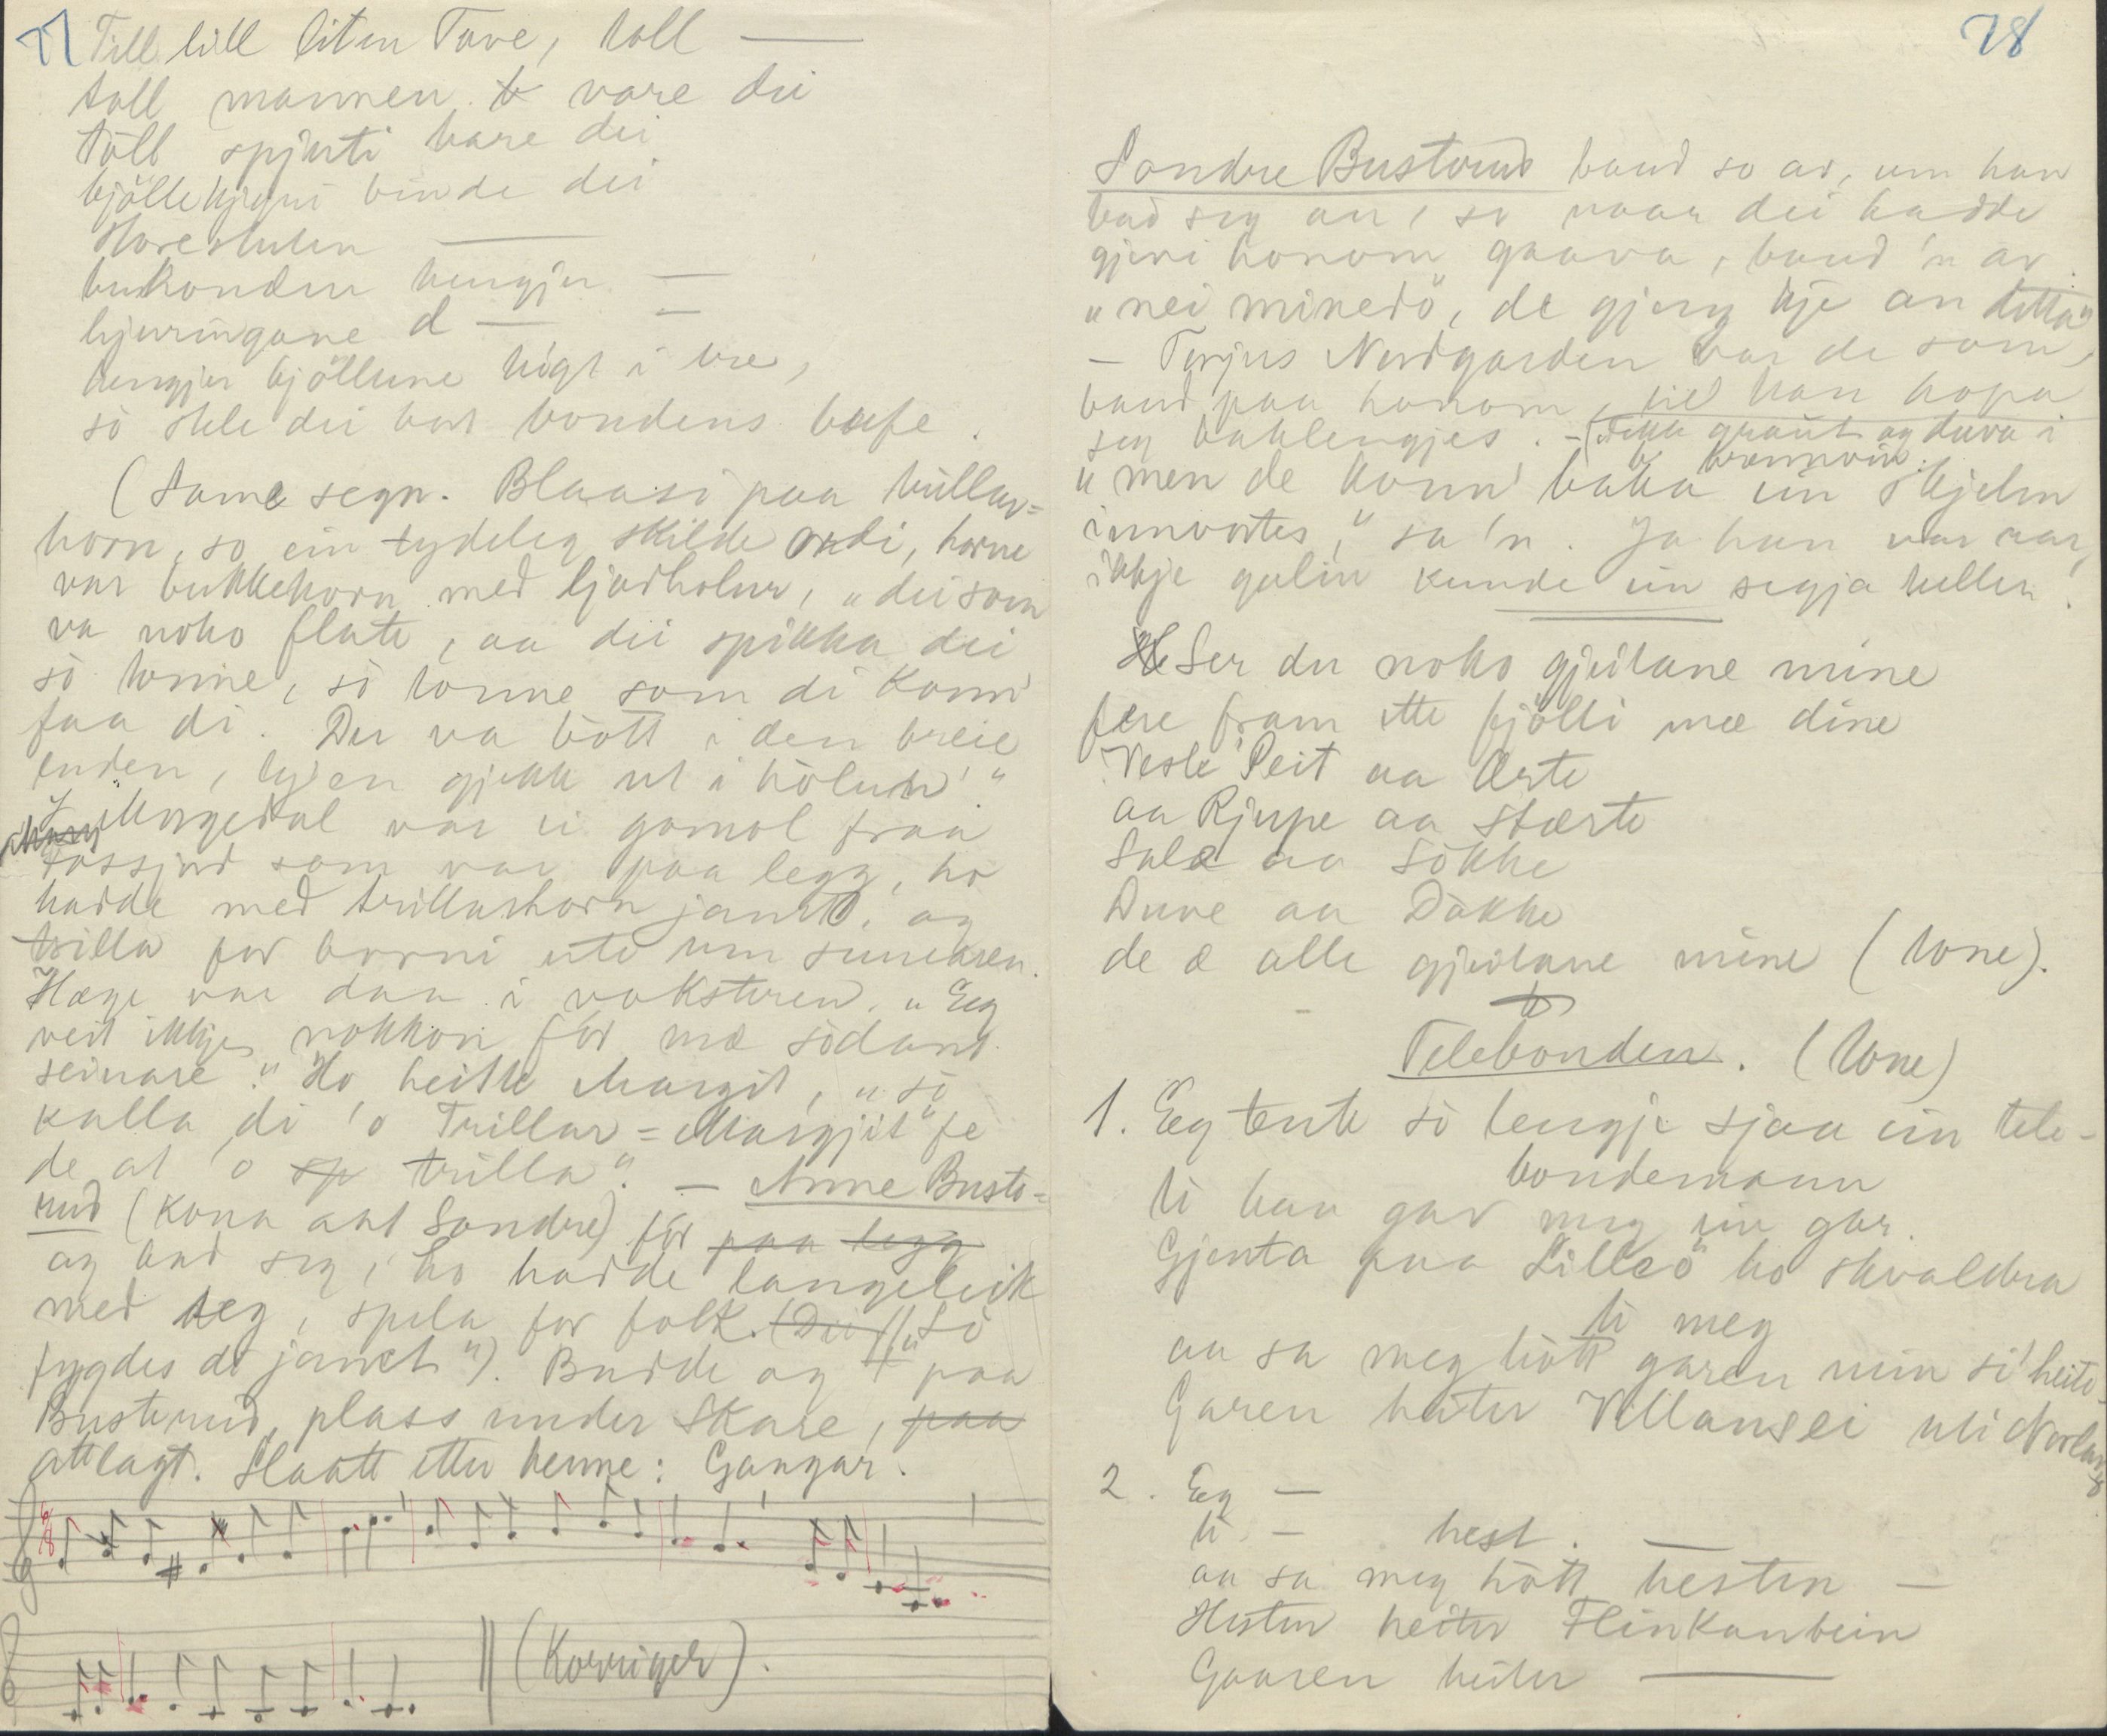 77
Till lill liten Tove, toll —
toll mannen vare dei
Tòll spjuti bare dei
bjöllekjyni binde dei
Storestuten —
buhonden hengjer —
hjuringane d — —
hengjer bjöllune högt i tre,
sò stele dei bort bondens bufe.
(Same segn. Blaasi paa trillar=
horn, so ein tydeleg skilde ordi, horne
var bukkehorn med ljodholur, „dei som
va noko flate, aa dei spikka dei
sò tonne, sò tonne som di konn'
faa di. Der va bòtt i den breie
enden, ljoen gjekk ut i hòlun'."
I Morgedal var ei gomol fraa
Fossjord som var paa legg, ho
hadde med trillarhorn jamt, og
trilla for borni ute um sumaren.
Hæge var daa i voksteren. „Eg
veit ikkje nokkon fór mæ sòdant
seinare." Ho heitte Margit, „sò
kalla di 'o Trillar=Margjit" fe
de at 'o sp trilla". — Anne Buste=
rud (kona aat Sondre) fór paa legg
og bad seg, ho hadde langeleik
med seg, spela for folk. (Dei „Sò
fygdes di jamt"). Budde og † paa
Busterud, plass under Skare, paa
attlagt. Slaatt etter henne: Gangar.
(Korriger).
78
Sondre Busterud baud so av, um han
bad seg an, so naar dei hadde
gjevi honom gaava, baud 'n av
„nei minedö, de gjeng kje an detta"
— Torjus Nordgarden var de som
baud paa honom, vil han hopa
seg baklengjes. — (Fekk graut og duva i
brennvin.
„men de konn' baka ein skjelm
innvortes," sa 'n. Ja han var var,
ikkje galin kunde ein segja heller!
Ser du noko gjeitane mine
fere fram ette fjölli mæ dine
Vesle Peit aa Ærte
aa Rjupe aa Stærte
Sale aa Sòkke
Duve aa Dòkke
de æ alle gjeitane mine (tone).
Telebonden. (Tone)
1. Eg tente sò lengje sjaa ein tele-
bondemann
ti han gav meg ein gar.
Gjenta paa Lilleö ho skvaldra
ti meg
aa sa meg hòtt garen min sí heite
Garen heiter Villansei uti Norlan
2. Eg —
ti — hest. —
aa sa meg hòtt hesten —
Hesten heiter Flinkanbein
Gaaren heiter —